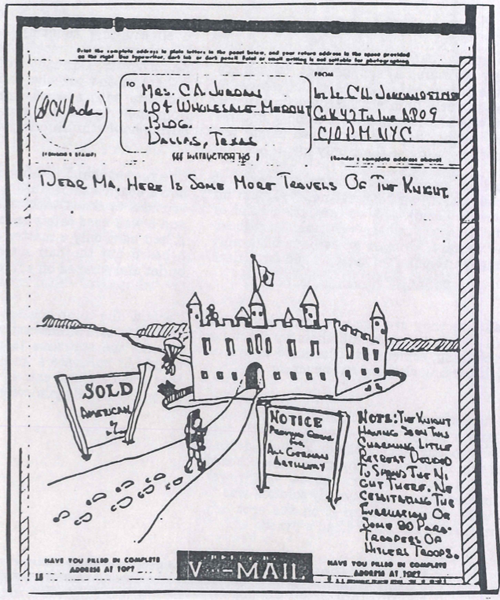 Print the complete address in plain letters in the panel below, and your return address in the space provided
on the right. Use typewriter, dark ink or dark pencil. Faint or small writing is not suitable for photographing.
TO
MRS. C.A. JORDAN
104 WHOLESALE MERCHT
BLDG.
DALLAS, TEXAS
FROM
1st. Lt. C.H. JORDAN
APO 9
C/O P.M. N.Y.C.
(CENSOR'S STAMP)
SEE INSTRUCTION NO. 1
(Sender's complete address above)
DEAR MA, HERE IS SOME MORE TRAVELS OF THE KNIGHT.
SOLD
AMERICAN
NOTICE
PROVING GROUND
FOR
ALL GERMAN
ARTILLERY
NOTE: THE KNIGHT
HAVING SEEN THIS
CHARMING LITTLE
RETREAT DECIDED
TO SPEND THE NI
GHT THERE. NE
CESSITATING THE
EVACUATION OF
SOME 80 PARA-
TROOPERS OF
HITLERS TROOPS.
HAVE YOU FILLED IN COMPLETE
ADDRESS AT TOP?
V···—MAIL
HAVE YOU FILLED IN COMPLETE
ADDRESS AT TOP?